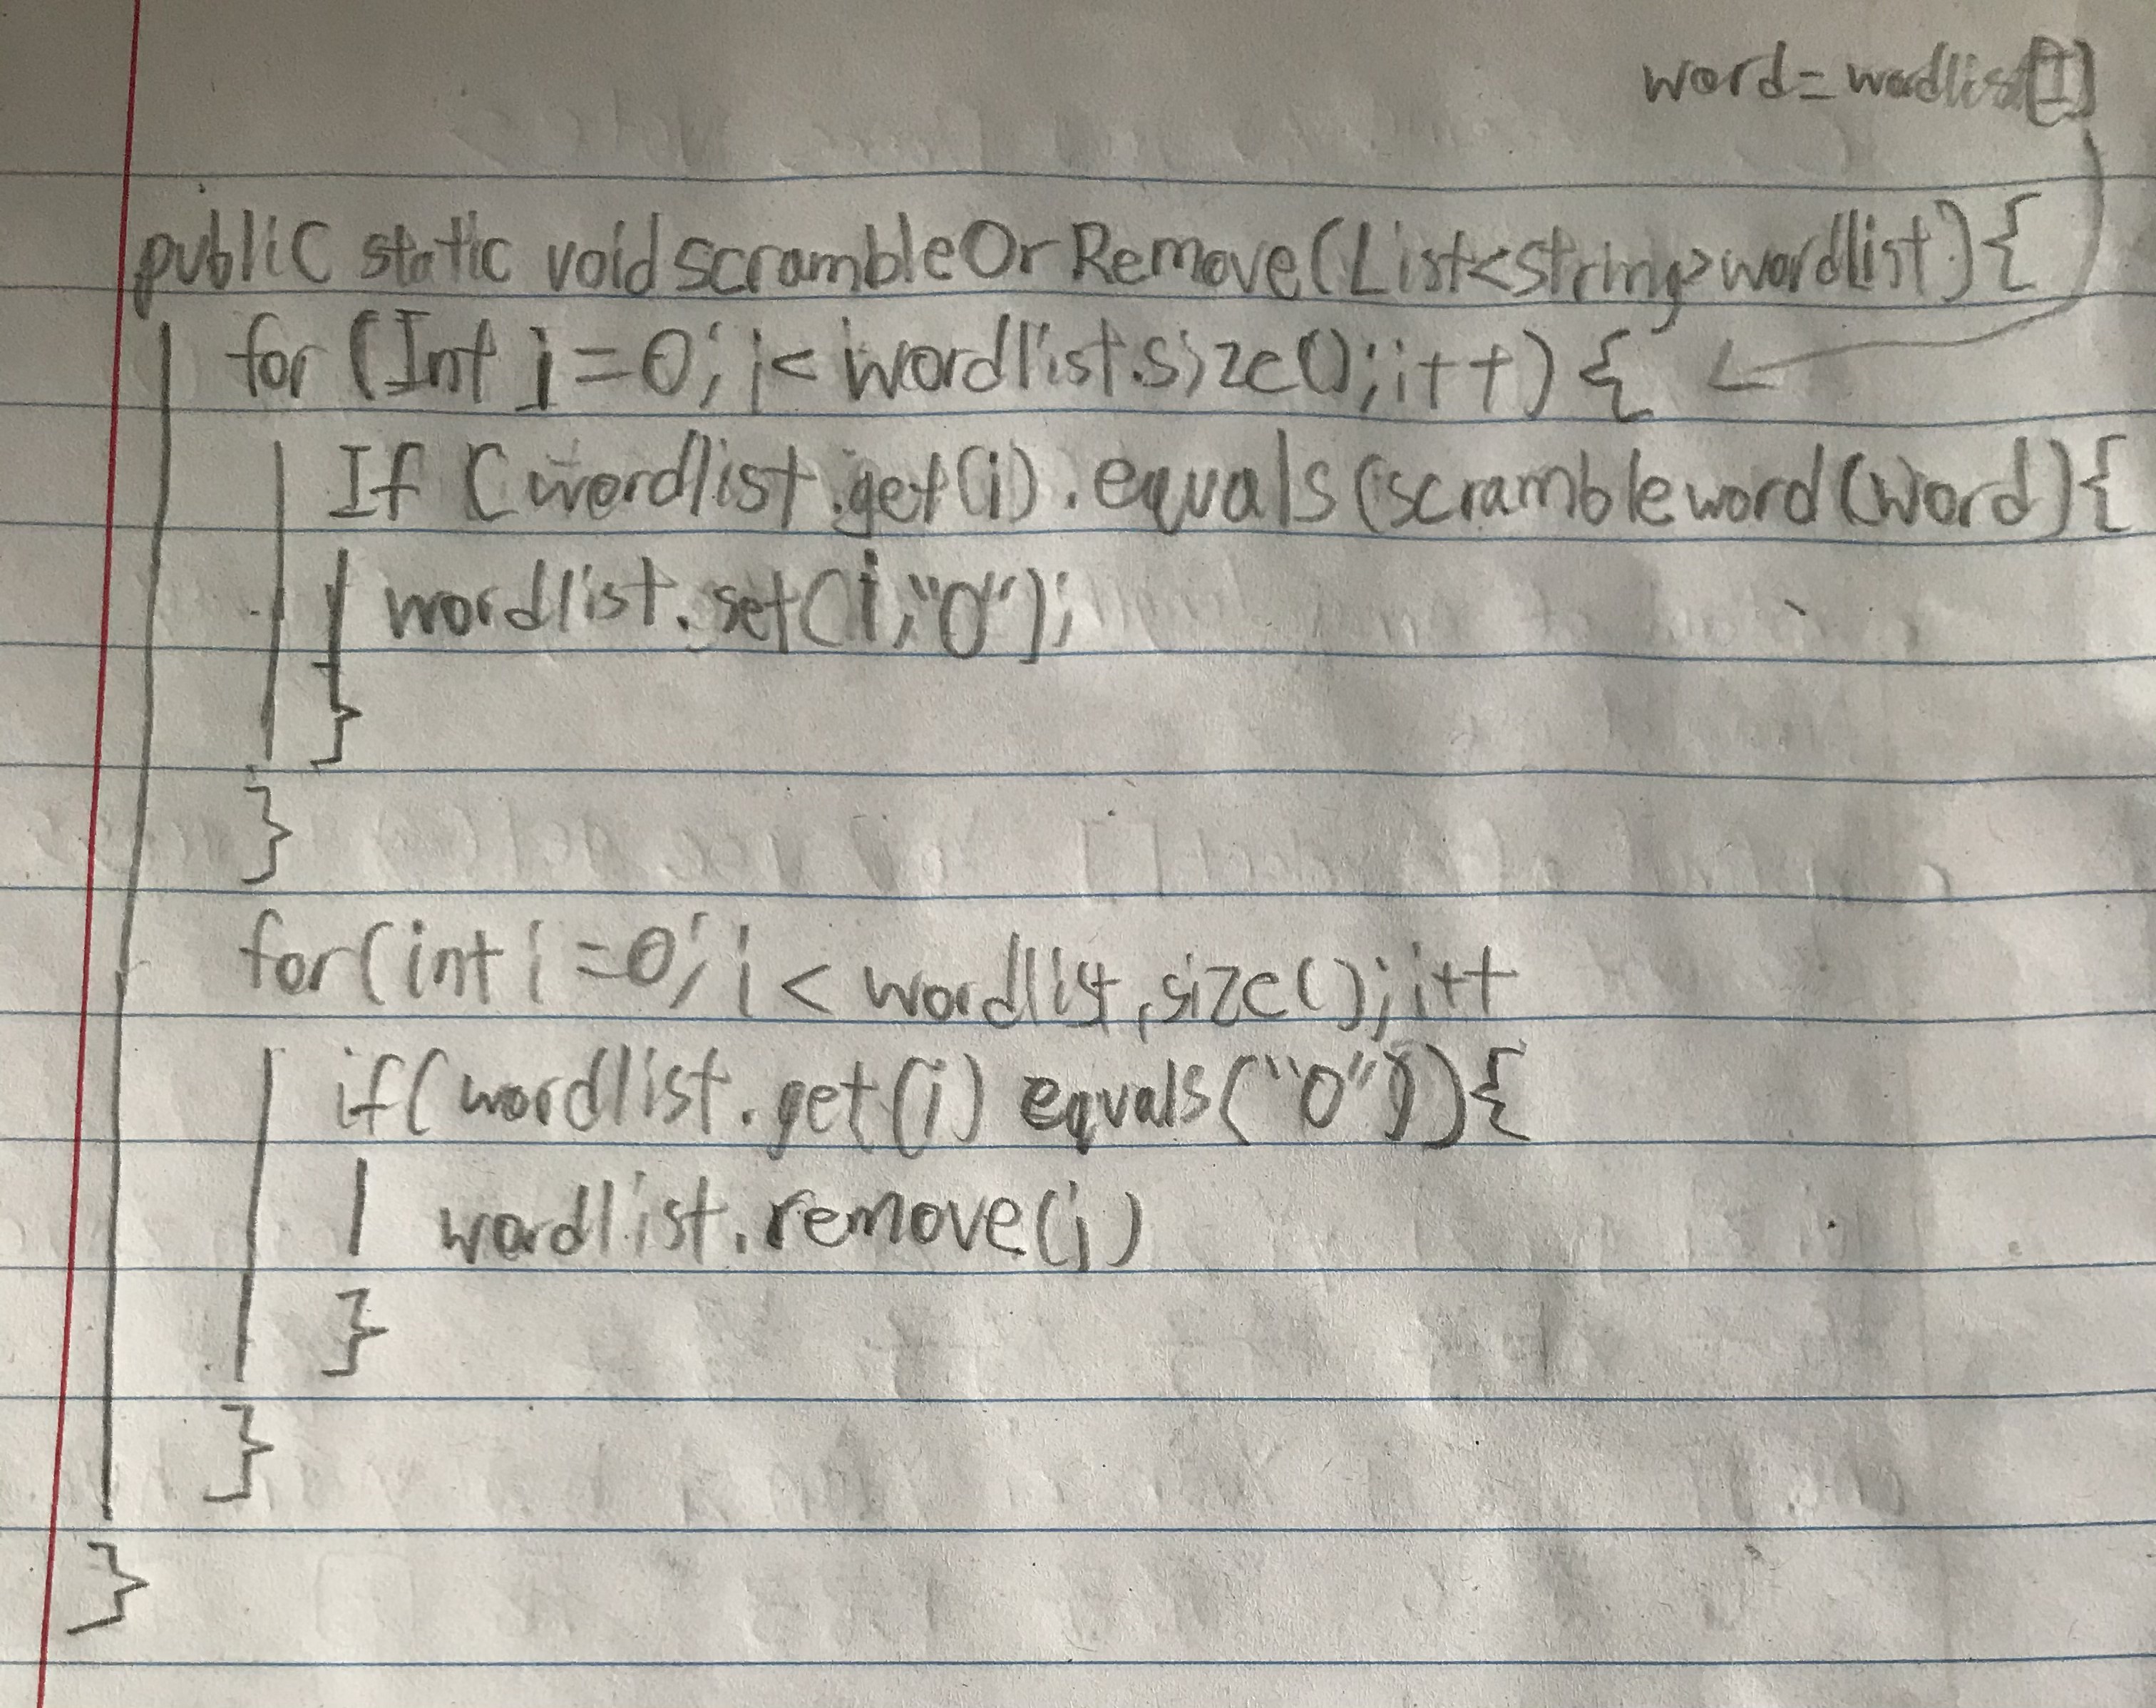 word=wordlist[I]
public static void scrambleOrRemove(List<string>wordlist){
for (Int i=0; i< wordlist.size();i++){
If (wordlist.get(i).equals(scrambleword(word){
wordlist.set(i,"0");
}
}
for(int i=0; i< wordlist.size();i++
if(wordlist.get(i) equals("0")){
wordlist.remove(i)
}
}
}